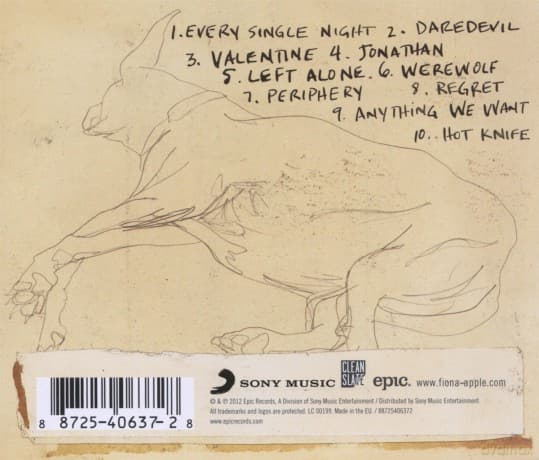 1. EVERY SINGLE NIGHT 2. DAREDEVIL
3. VALENTINE 4. JONATHAN
5. LEFT ALONE. 6. WEREWOLF
7. PERIPHERY 8. REGRET
9. ANYTHING WE WANT
10.. HOT KNIFE
SONY MUSIC CLEAN SLATE epic. www.fiona-apple.com
© & ℗ 2012 Epic Records, A Division of Sony Music Entertainment / Distributed by Sony Music Entertainment.
All trademarks and logos are protected. LC 00199. Made in the EU. / 88725406372
www.epicrecords.com
8 87254 06372 8